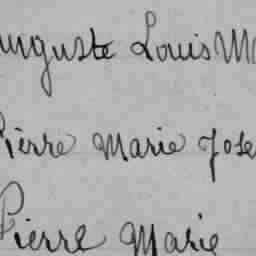 Auguste Louis M
Pierre Marie Jose
Pierre Marie